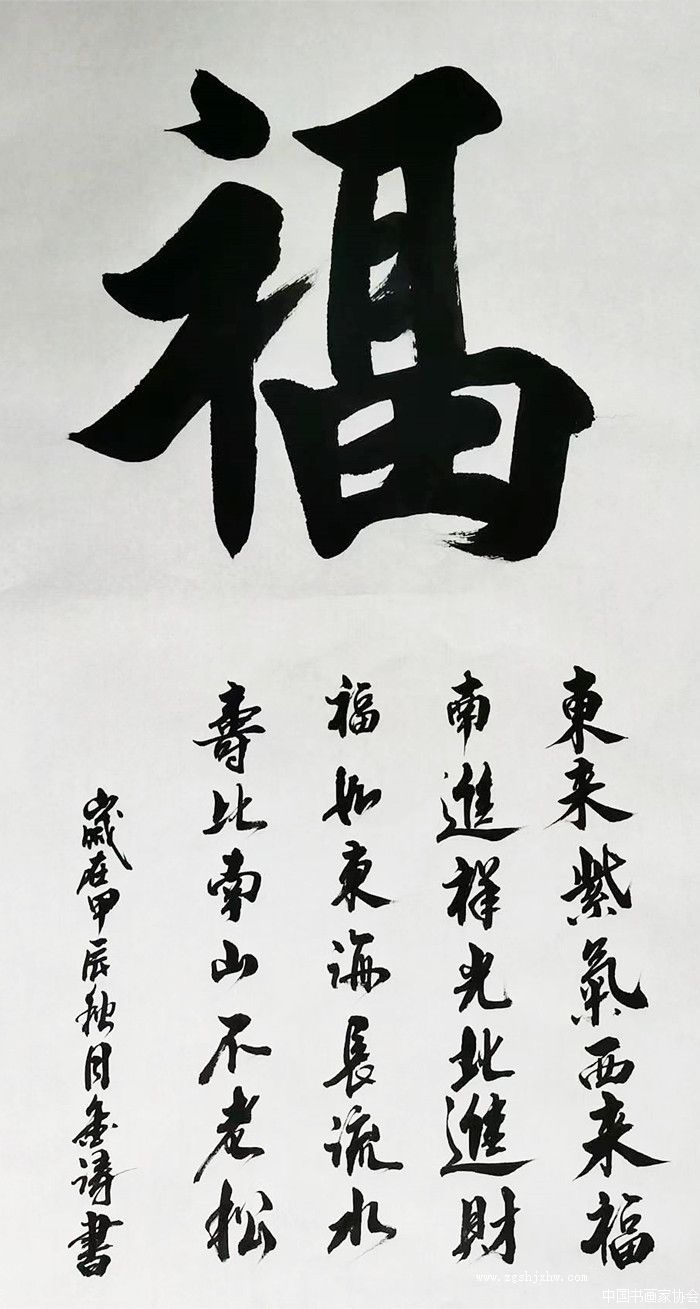 福
東来紫氣西来福
南進祥光北進財
福如東海長流水
壽比南山不老松
歲在甲辰秋月金濤書
www.zgshjzhw.com
中国书画家协会